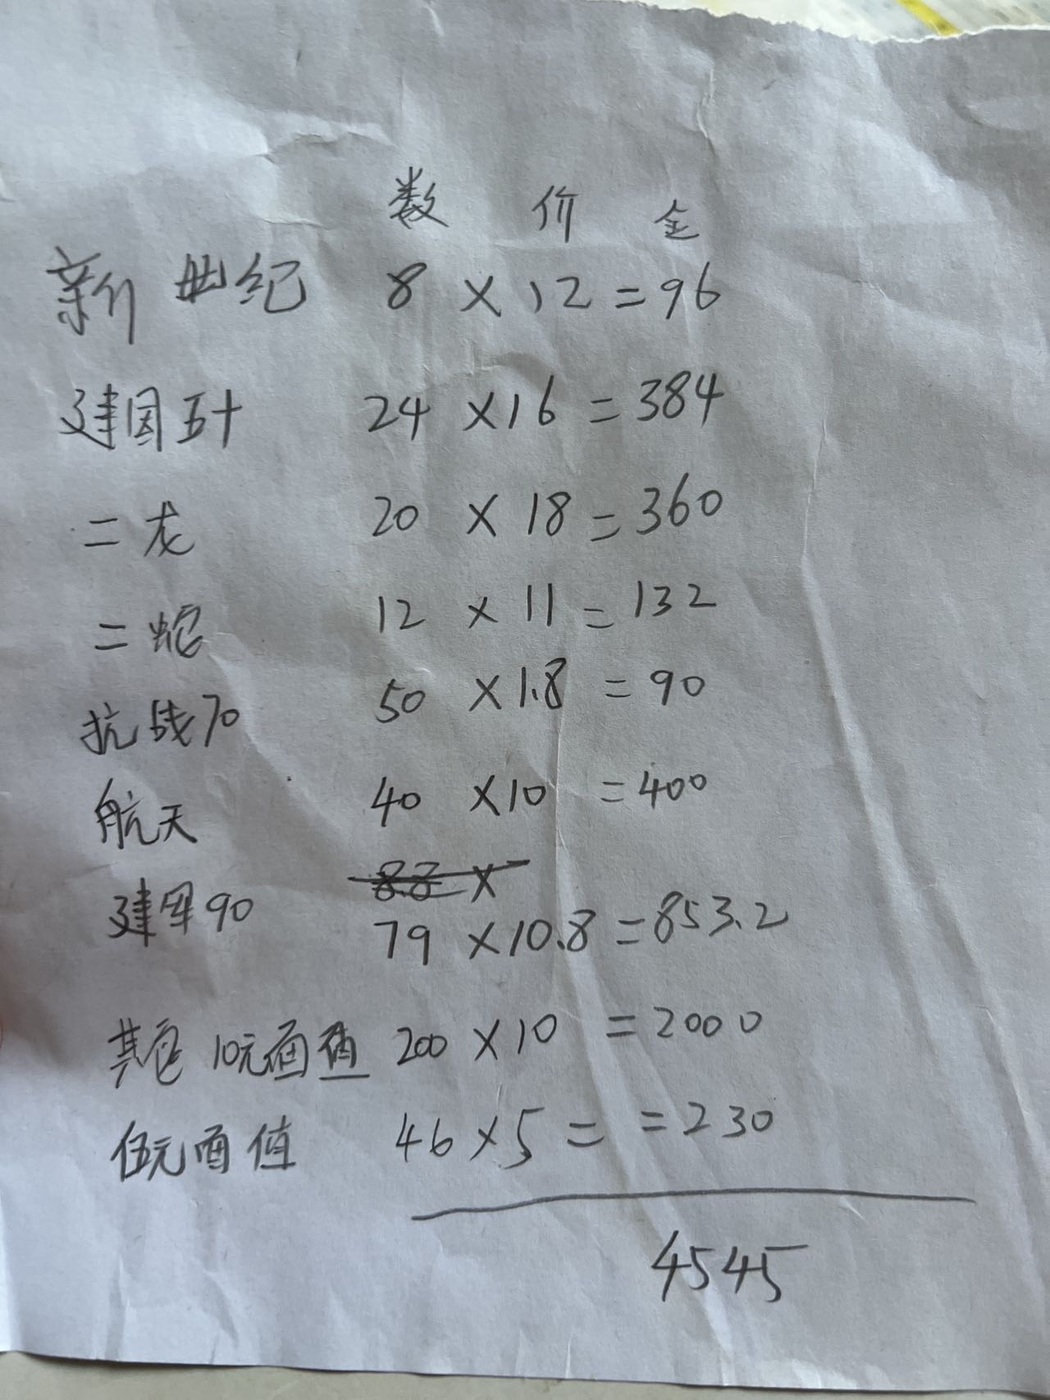 数 价 金
新世纪 8 × 12 = 96
建国五十 24 × 16 = 384
二龙 20 × 18 = 360
二蛇 12 × 11 = 132
抗战70 50 × 1.8 = 90
航天 40 × 10 = 400
88 ×
建军90 79 × 10.8 = 853.2
其它 10元面值 200 × 10 = 2000
伍元面值 46 × 5 = = 230
4545